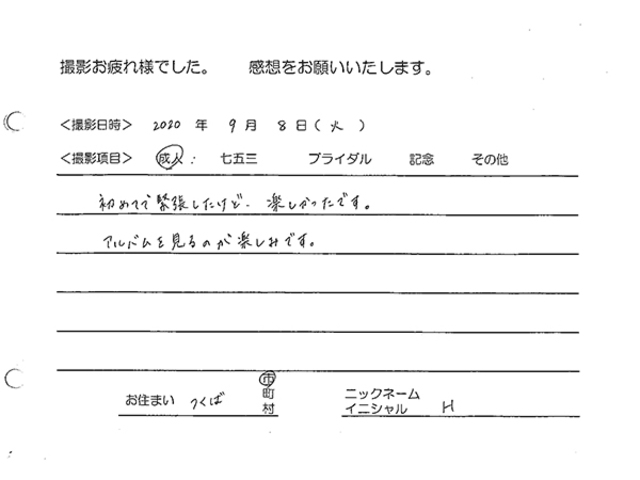 撮影お疲れ様でした。 感想をお願いいたします。
<撮影日時> 2020 年 9 月 8 日 ( 火 )
<撮影項目> 成人 : 七五三 ブライダル 記念 その他
初めてで緊張したけど、楽しかったです。
アルバムを見るのが楽しみです。
市
町
お住まい つくば 村
ニックネーム
イニシャル H